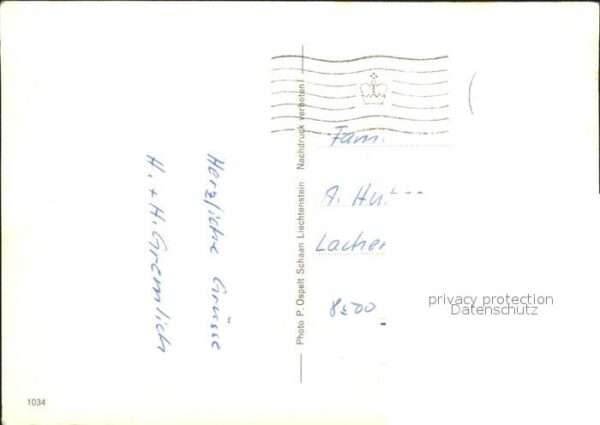 Herzliche Grüsse
H. + H. Gremlich
Photo P. Ospelt Schaan Liechtenstein Nachdruck verboten!
Fam.
A. Hu
Lachen
8500
privacy protection
Datenschutz
1034